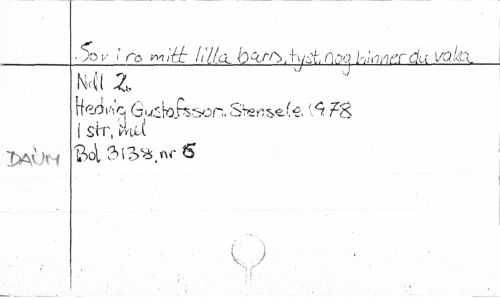 Sov i ro mitt lilla barn, tyst, nog hinner du vaka
N:ll 2.
Hedvig Gustafsson. Stensele. 1978
1 str, mel
DAUM Bd 3138, nr 6